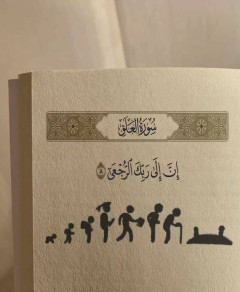 سُورَةُ العَلَق
إِنَّ إِلَىٰ رَبِّكَ ٱلرُّجْعَىٰ ٨